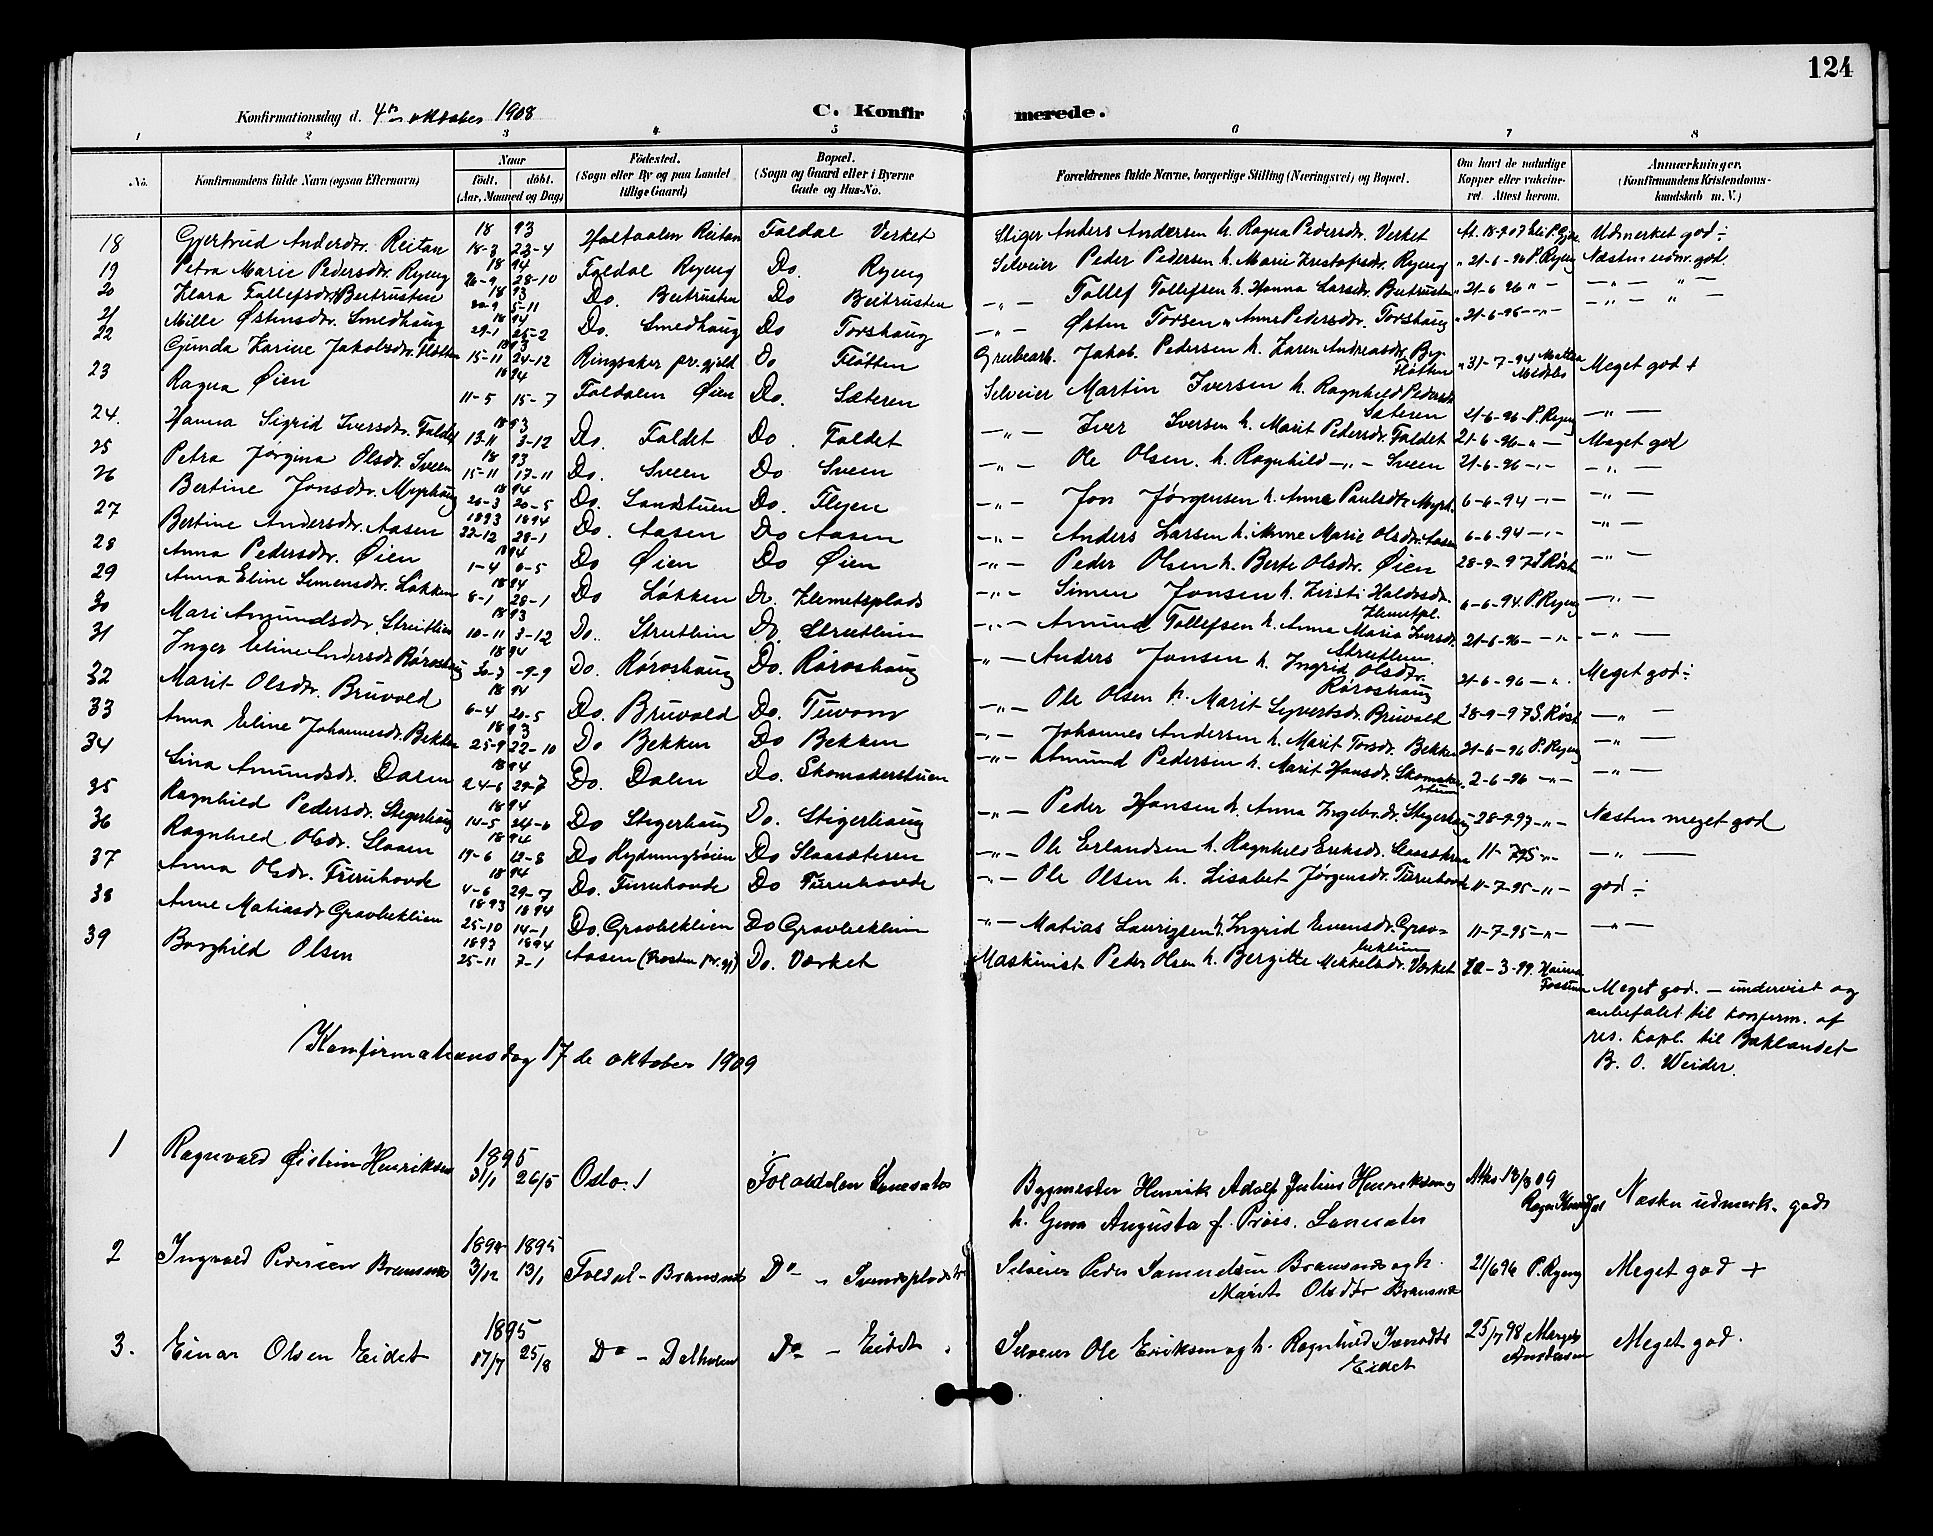 124
Konfirmationsdag d. 4de oktober 1908 C. Konfirmerede.
1 2 3 4 5 6 7 8
No. Konfirmandens fulde Navn (ogsaa Efternavn) Naar født, døbt. (Aar, Maaned og Dag) Födested. (Sogn eller By og paa Landet tillige Gaard) Bopæl. (Sogn og Gaard eller i Byerne Gade og Hus-No. Forældrenes fulde Navne, borgerlige Stilling (Næringsvei) og Bopæl. Om havt de naturlige Kopper eller vakcineret. Attest herom. Anmærkninger. (Konfirmandens Kristendomskundskab m. V.)
18 Gjertrud Andersdtr. Reitan 1893 18-3 23-4 Holtaalen Reitan Foldal Verket Stiger Anders Andersen h. Ragna Pedersdtr. Verket At. 18-9 07 Udmerket god ÷
19 Petra Marie Pedersdtr. Ryeng 1894 26-9 28-10 Foldal Ryeng Do. Ryeng Selveier Peder Pedersen h. Marie Kristofsdtr. Ryeng " 21-6-96 P. Ryeng Næsten udm. god.
20 Klara Tollefsdtr. Beitrusten 1893 20-9 5-11 Do. Beitrusten Do Beitrusten -„- Tollef Tollefsen h. Hanna Larsdtr. Beitrusten " 21-6 96 " - -„- " -
21 Mille Østensdtr. Smedhaug 1894 29-1 25-2 Do. Smedhaug Do Torshaug -„- Østen Torsen " Anne Pedersdtr. Torshaug " 21-6-96 -„- -„- " -
22 Gunda Karine Jakobsdtr. Fløtten 1893 15-11 24-12 Ringsaker pr. gjeld Do Fløtten Grubearb. Jakob Pedersen h. Karen Andreasdtr. Fløtten " 31-7-94 Meget god +
23 Ragna Øien 1894 11-5 15-7 Foldalen Øien Do. Sæteren Selveier Martin Iversen h. Ragnhild Pedersdtr. Sæteren 21-6-96 P. Ryeng -„-
24. Hanna Sigrid Iversdtr. Foldet 1893 13-11 3-12 Do. Foldet Do. Foldet -„- Iver Iversen h. Marit Pedersdtr. Foldet 21-6-96 -„- Meget god
25 Petra Jørgina Olsdtr. Sveen 1893 15-11 17-11 Do. Sveen Do Sveen -„- Ole Olsen h. Ragnhild -„- Sveen 21-6-96 -„- -„-
26 Bertine Jonsdtr. Myrhaug 1894 26-3 20-5 Do. Sandstuen Do. Flyen -„- Jon Jørgensen h. Anne Paulsdtr. Myrh. 6-6-94 -„- -„-
27 Bertine Andersdtr. Aasen 1893 1894 22-12 28-1 Do. Aasen Do Aasen -„- Anders Larsen h. Anne Marie Olsdtr. Aasen 6-6-94 -„- -„-
28 Anna Pedersdtr. Øien 1894 1-4 6-5 Do Øien Do Øien -„- Peder Olsen h. Berte Olsdtr. Øien 28-9-97 S. Røst -„-
29 Anna Eline Simensdtr. Løkken 1894 8-1 28-1 Do Løkken Do. Klemetsplads -„- Simen Jonsen h. Kirsti Haldosdtr. Klemetpl. 6-6-94. P. Ryeng -„-
30 Mari Amundsdtr. Streitlien 1893 10-11 3-12 Do. Streitlien Do. Streitlien -„- Amund Tollefsen h. Anne Maria Iversdtr. Streitlien. 21-6-96 -„- -„-
31 Inger Eline Andersdtr. Røroshaug 1894 30-7 -9-9 Do. Røroshaug Do. Røroshaug -„- Anders Jonsen h. Ingrid Olsdtr. Røroshaug 21-6-96 -„- Meget god ÷
32 Marit Olsdtr. Bruvold 1894 6-4 20-5 Do. Bruvold Do. Tuvom -„- Ole Olsen h. Marit Syvertsdtr. Bruvold 28-9-97 S. Røst -„-
33 Anna Eline Johannesdtr. Bekken 1893 25-9 22-10 Do Bekken Do Bekken -„- Johannes Andersen h. Marit Torsdtr. Bekken 21-6-96 P. Ryeng -„-
34 Lina Amundsdtr. Dalen 1894 24-6 29-7 Do. Dalen Do. Skomakerstuen -„- Amund Pedersen h. Marit Hansdtr. Skomakerstuen 2-6-96 -„- -„-
35 Ragnhild Pedersdtr. Stigerhaug 1894 14-5 24-6 Do Stigerhaug Do. Stigerhaug -„- Peder Hansen h. Anna Ingebr.dtr. Stigerhaug 28-9-97 -„- Næsten meget god
36 Ragnhild Olsdtr. Slaaen 1894 19-6 12-8 Do Do Slaasæteren -„- Ole Erlandsen h. Ragnhild Eriksdtr. Slaasætren 11-7 95 -„- -„-
37 Anna Olsdtr. Furuhovde 1894 4-6 29-7 Do. Furuhovde Do Furuhovde -„- Ole Olsen h. Lisabet Jørgensdtr. Furuhovde 11-7-95 -„- god ÷
38 Anne Matiasdtr. Gravbeklien 1893 1894 25-10 14-1 Do. Gravbeklien Do Gravbeklien -„- Matias Lauritsen h. Ingrid Evensdtr. Gravbeklien 11-7-95 -„- -„-
39 Borghild Olsen 1893 1894 25-11 7-1 Aasen (Frosten pr. gj) Do. Værket Maskinist Peder Olsen h. Bergitte Mikkelsdtr. Værket 20-3-99. Meget god. - undervist og
anbefalet til konfirm. af
res. kapl. til Baklandet
B. O. Weider.
Konfirmationsdag 17 de oktober 1909
1 Ragnvald Øistein Henriksen 1895 31/1 26/5 Oslo Foldalen Bygmester Henrik Adolf Julius Henriksen og h. Gina Augusta f. Prøis. Næsten udmerk. godt
2 Ingvald Pedersen Bransnes 1894 1895 3/12 13/1 Foldal - Bransnes Do - Svendsplads Selveier Peder Samuelsen Bransnes og h. Marit Olsdtr Bransnes 21/6 96 P. Ryeng Meget god +
3. Einar Olsen Eidet 1895 17/7 25/8 Do - Dalholen Do - Eidet Selveier Ole Eriksen og h. Ragnhild Eidet 25/7 98 Meget god.